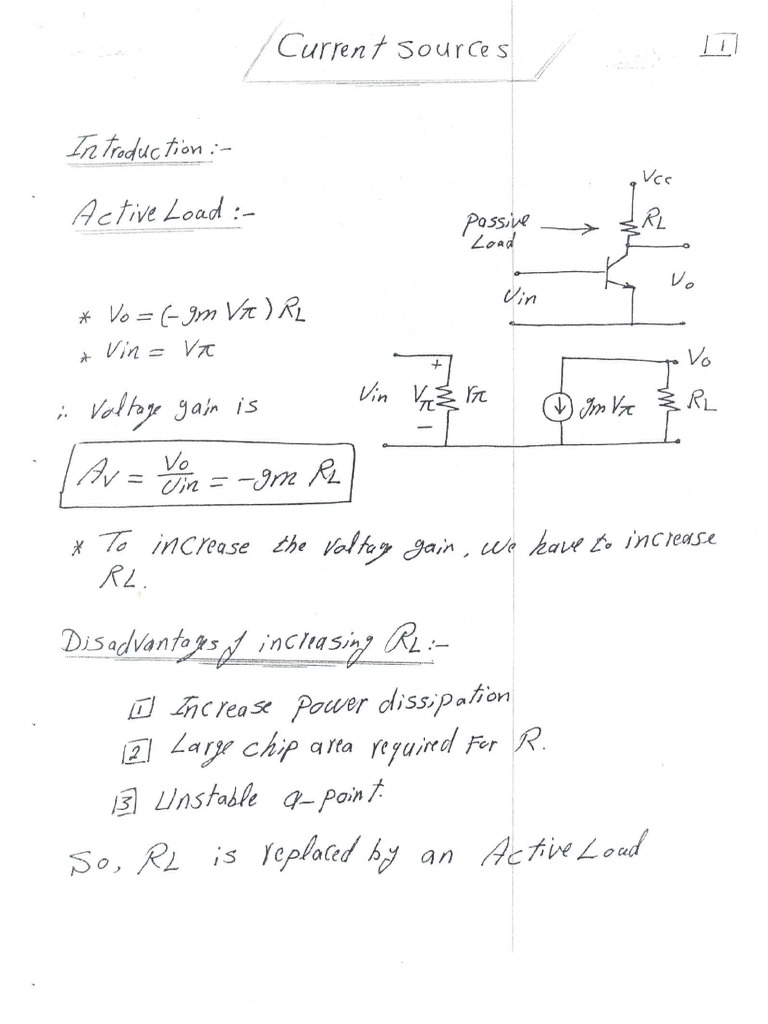 Current sources
1
Introduction :-
Active Load :-
Vcc
Passive
Load
RL
Vo
Vin
* Vo = (-gm Vπ) RL
* Vin = Vπ
∴ Voltage gain is
Av = Vo/Vin = -gm RL
Vin
+
Vπ
-
rπ
gm Vπ
Vo
RL
* To increase the voltage gain, we have to increase
RL.
Disadvantages of increasing RL :-
1 Increase power dissipation
2 Large chip area required For R.
3 Unstable Q-point.
So, RL is replaced by an Active Load